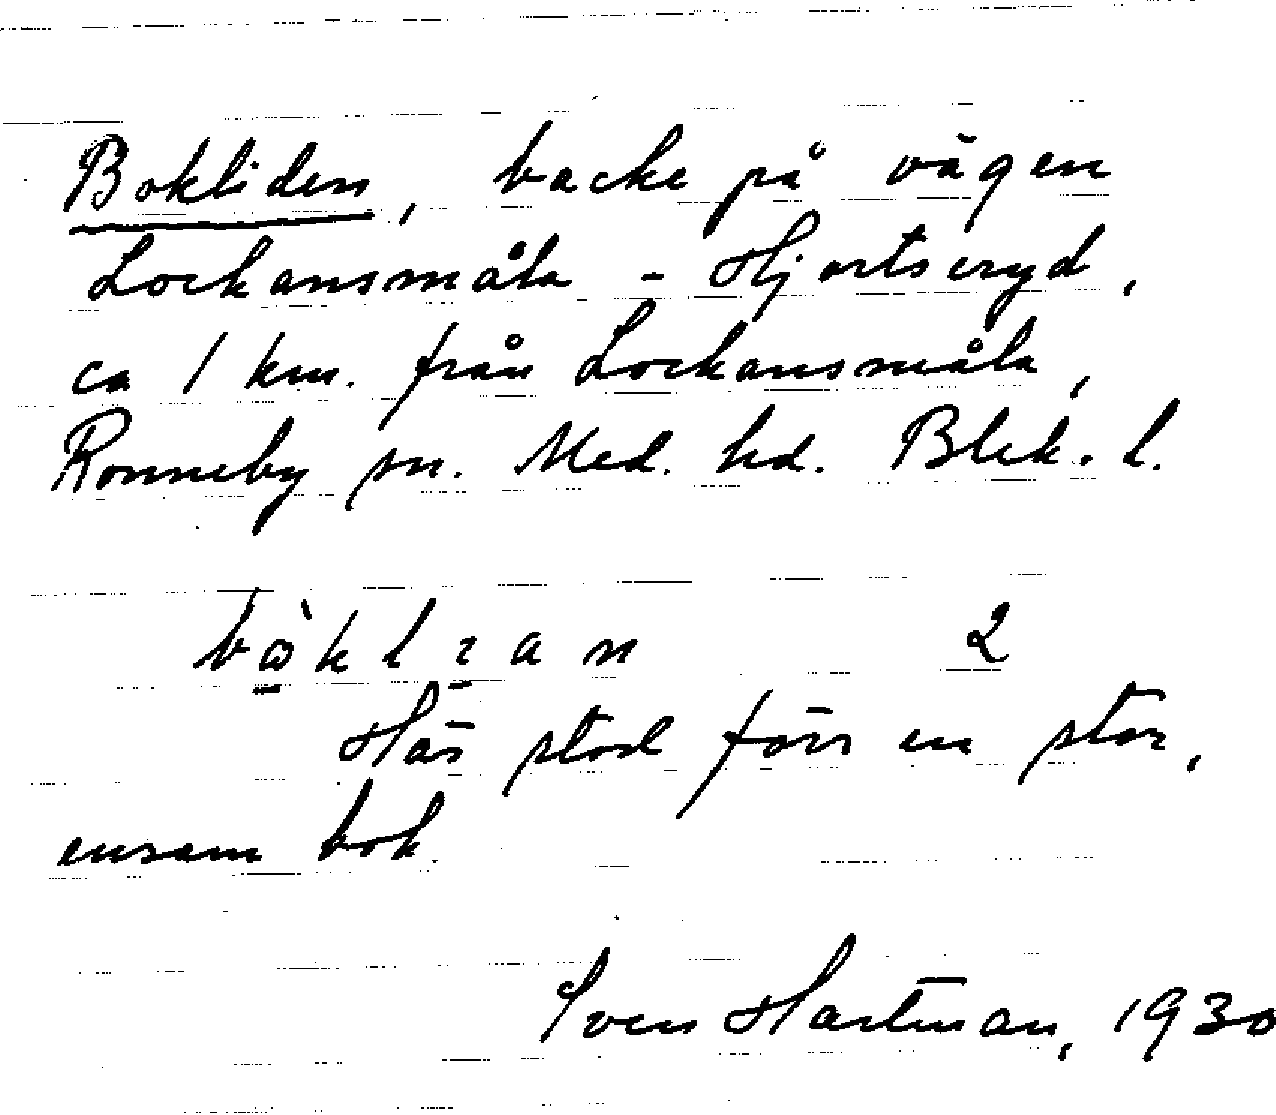 Bokliden, backe på vägen
Lockansmåla - Hjortseryd,
ca 1 km. från Lockansmåla,
Ronneby sn. Med. hd. Blek. l.
2
Här stod förr en stor,
ensam bok.
Sven Hartman, 1930